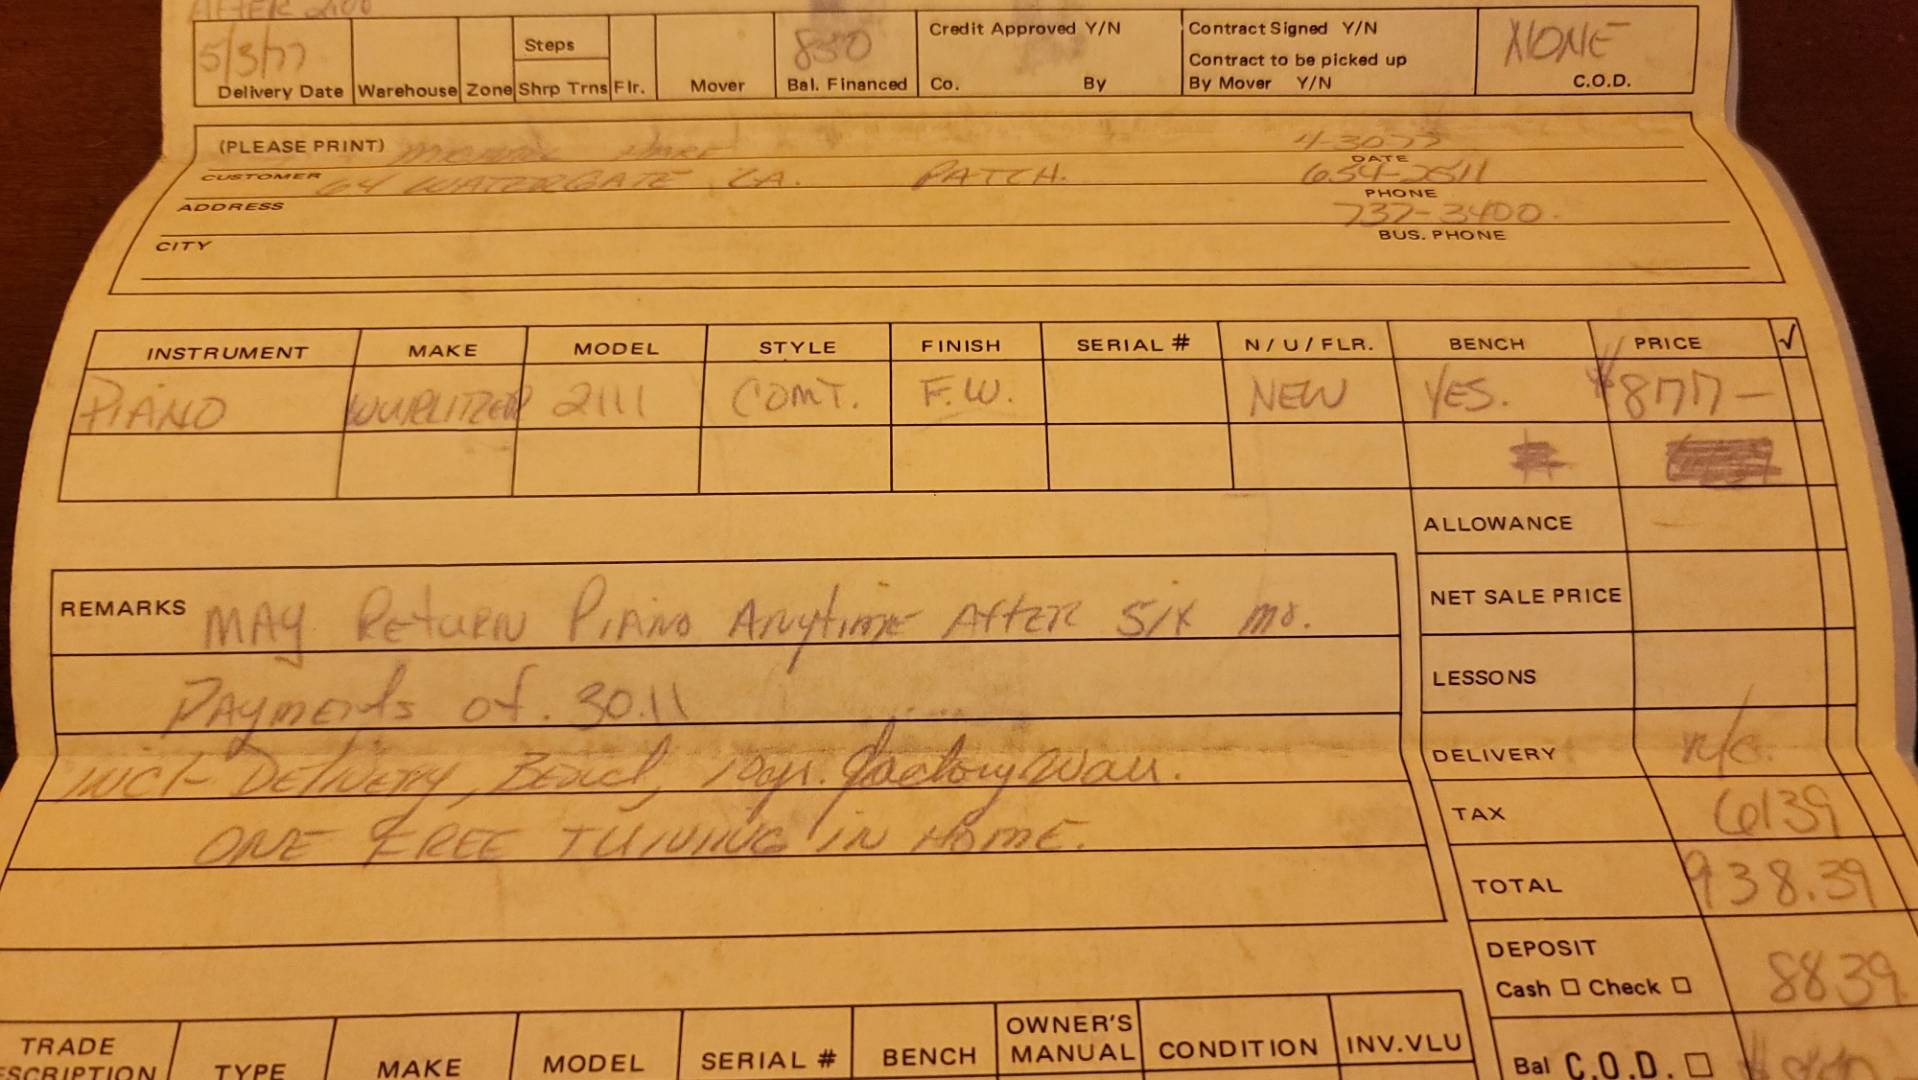 AFTER 2:00
5/3/77 850 NONE
Steps Credit Approved Y/N Contract Signed Y/N
Contract to be picked up
Delivery Date Warehouse Zone Shrp Trns Flr. Mover Bal. Financed Co. By By Mover Y/N C.O.D.
(PLEASE PRINT) 4-30-77
DATE
CUSTOMER 64 WATERGATE LA. PATCH. 654-2511
PHONE
ADDRESS 737-3400
BUS. PHONE
CITY
INSTRUMENT MAKE MODEL STYLE FINISH SERIAL # N / U / FLR. BENCH PRICE √
PIANO WURLITZER 2111 COMT. F.W. NEW YES. $877—
ALLOWANCE —
NET SALE PRICE
LESSONS
DELIVERY n/c.
TAX 6139
TOTAL 938.39
DEPOSIT
Cash □ Check □ 8839
Bal C.O.D. □
REMARKS MAY Return Piano Anytime After Six mo.
Payments of. 30.11
Incl- Delivery, Bench, 10yr. factory warr.
ONE FREE TUNING IN HOME.
TRADE
TYPE MAKE MODEL SERIAL # BENCH OWNER'S MANUAL CONDITION INV.VLU